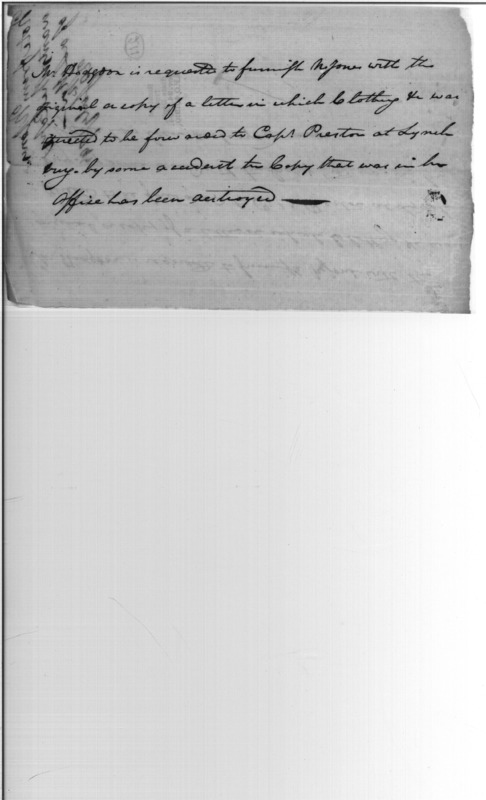 Mr Hodgdon is requested to furnish W Jones with the
original a copy of a letter in which Clothing &c was
directed to be forwarded to Capt Preston at Lynch
burg. by some accident the Copy that was in his
Office has been destroyed